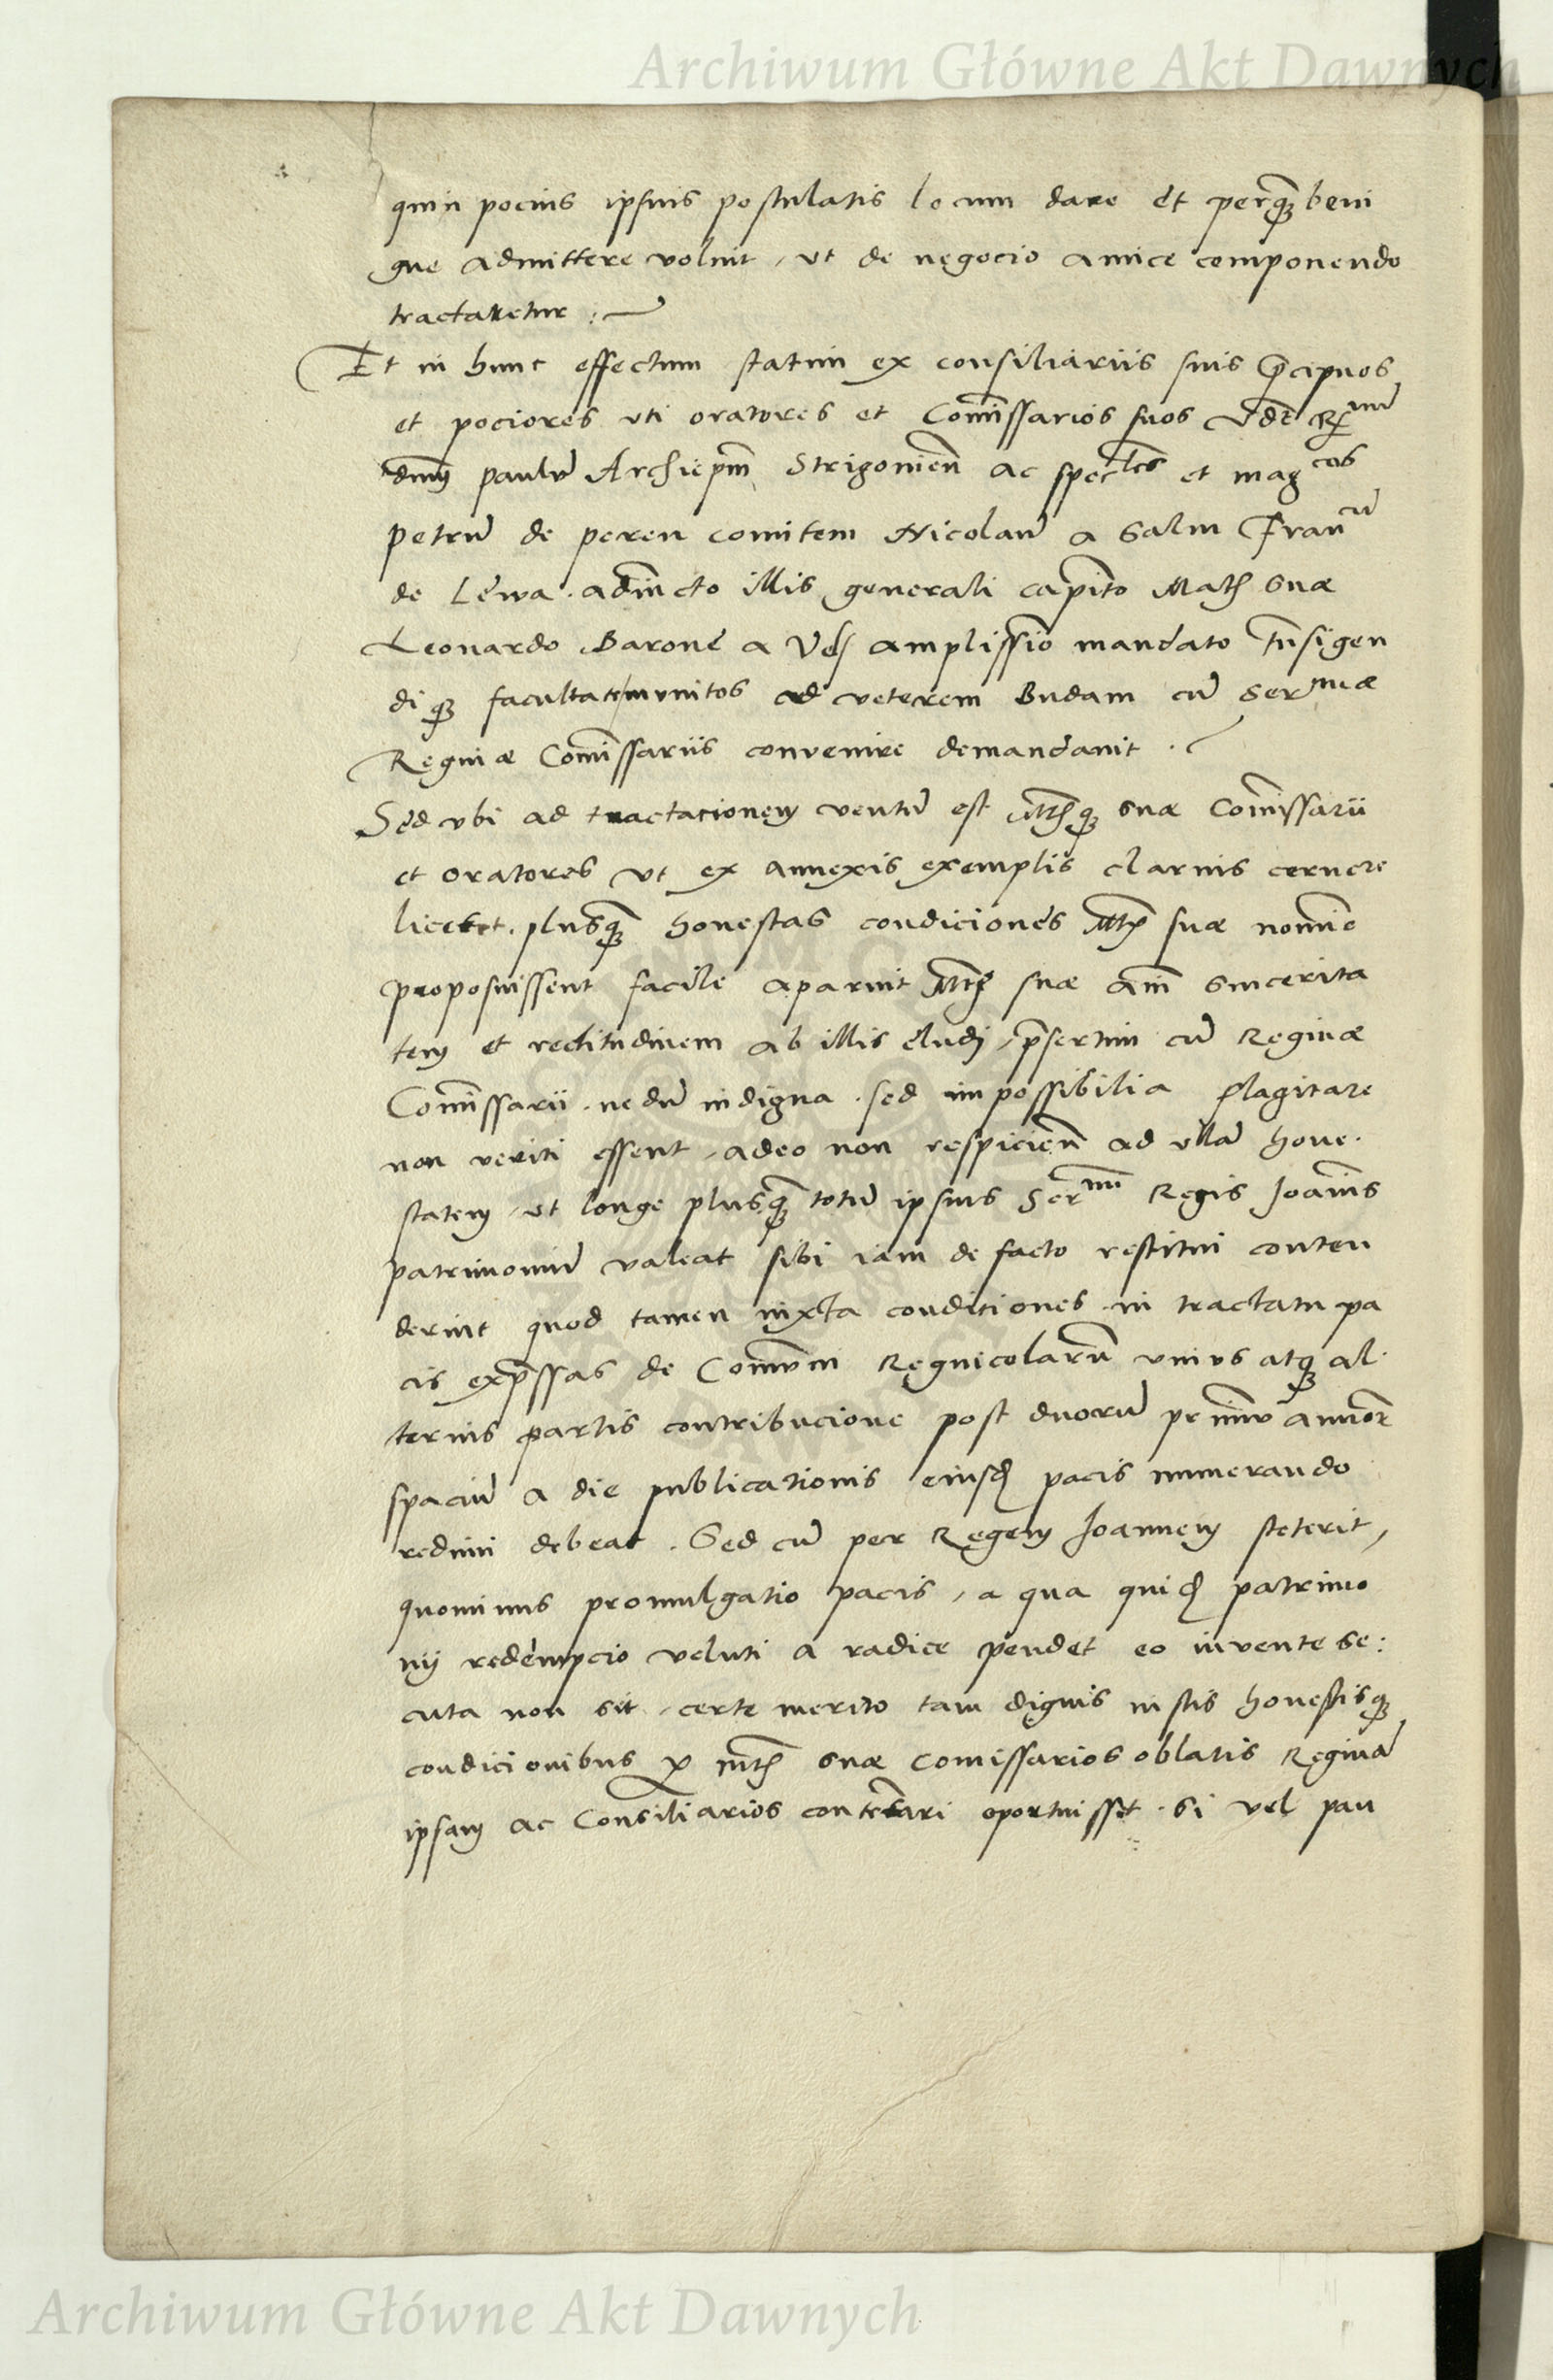 Archiwum Główne Akt Dawnych
quin pocius ipsius postulatis locum dare et perq̃ꝫ beni
gne admittere voluit, vt de negocio amice componendo
tractaretur :
Et in hunc effectum statim ex consiliariis suis p̃cipuos
et pociores vti oratores et Com̃issarios suos vidẽt R^mũ
dm̃ paulũ Archiep̃m Strigonien̄ ac spec^les et mag^cos
petrũ de peren comitem Nicolaũ a Salm Fran^cũ
de Lewa. adiũcto illis generali capit̃o Mat̃ suæ
Leonardo Baronẽ a Vels amplissi͂o mandato tñsigen
di qꝫ facultate munitos ad veterem Budam cũ Ser^mæ
Reginæ Com̃issariis convenire demandauit.
Sed vbi ad tractationem ventũ est Mt̃qꝫ suæ Com̃issarii
et oratores vt ex annexis exemplis clarius cernere
liceret. plusq̃ꝫ honestas condiciones Mt̃ suæ nomi͂e
proposuissent facile aparuit Mt̃ suæ añi sincerita
tem et rectitudinem ab illis eludi, p̃sertim cũ Reginæ
Com̃issarii. nedũ indigna. sed impossibilia flagitare
non veriti essent, adeo non respicien̄ ad vllã hone.
statem, vt longe plusq̃ꝫ totũ ipsius Ser^mi Regis Joañis
patrimoniũ valeat sibi iam de facto restitui conten
derint quod tamen iuxta conditiones in tractatu pa
cis exp̃ssas de Com̃vni Regnicolarũ vnius atqꝫ al.
terius partis contribucione post duorũ primor̃ annor̃
spaciũ a die publicationis eiusd̃ pacis numerando
redimi debeat. Sed cũ per Regem Joannem steterit,
quominus promulgatio pacis, a qua quid̃ patrimo
nij redempcio veluti a radice pendet eo iuvente se:
cuta non sit, certe merito tam dignis iustis honestisqꝫ
condicionibus ꝑ mt̃ suæ comissarios oblatis Reginã
ipsam ac Consiliarios contentari oportuisset. si vel pau
Archiwum Główne Akt Dawnych